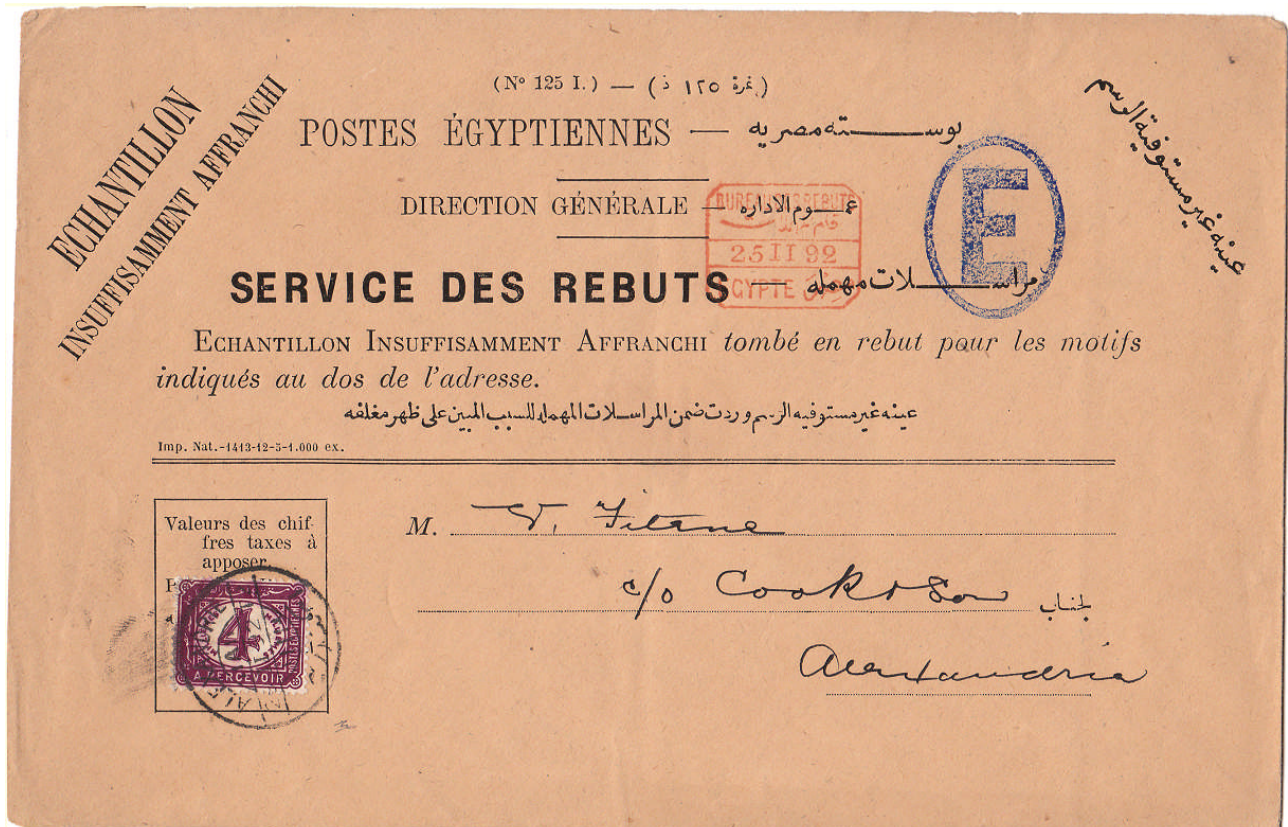 ECHANTILLON
INSUFFISAMMENT AFFRANCHI
(Nº 125 I.) — (نمرة ١٢٥ ذ)
عينه غير مستوفية الرسم
POSTES ÉGYPTIENNES — بوسته مصريه
E
DIRECTION GÉNÉRALE — عموم الاداره
BUREAU DES REBUTS
25 II 92
EGYPTE
SERVICE DES REBUTS — مراسلات مهمله
ECHANTILLON INSUFFISAMMENT AFFRANCHI tombé en rebut pour les motifs
indiqués au dos de l'adresse.
عينه غير مستوفيه الرسم وردت ضمن المراسلات المهمله للسبب المبين على ظهر مغلفه
Imp. Nat.-1413-12-5-1.000 ex.
Valeurs des chif-
fres taxes à
apposer.
POSTES EGYPTIENNES
4
A PERCEVOIR
M. V. Fitane
c/o Cook & Son
لجناب
Alexandria